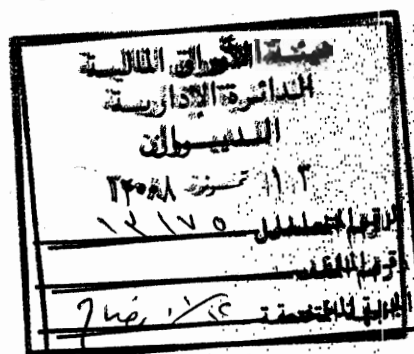 هيئة الأوراق المالية
الدائرة الإدارية
الديوان
١٣ تموز ٢٠٠٨
الرقم المتسلسل ١٣١٧٥
رقم الملف
الجهة المختصة